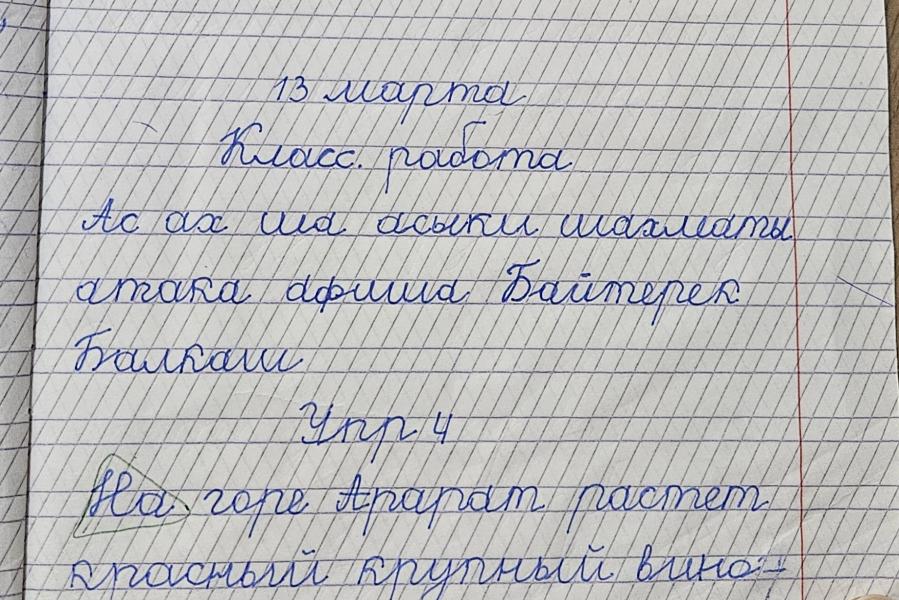 13 марта
Класс. работа
Ас ах ша асыки шахматы
атака афиша Байтерек
Балкаш
Упр 4
На горе Арарат растет
красный крупный вино-